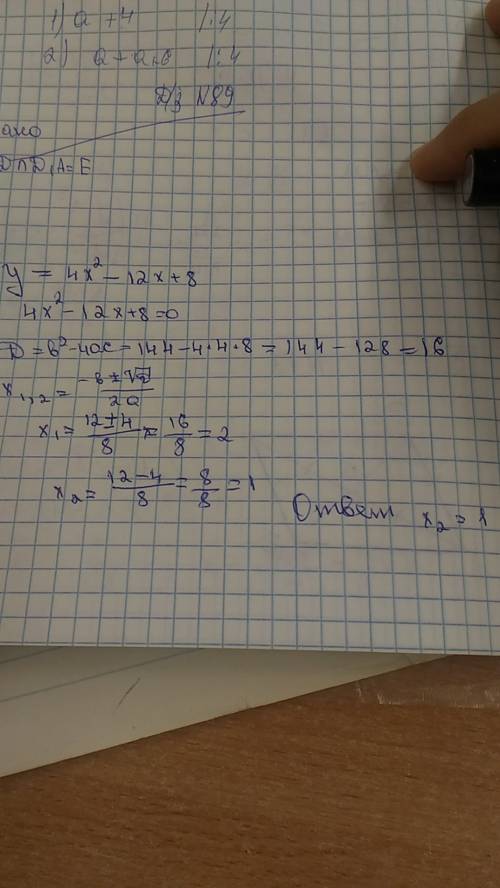 1) a + 4 /:4
2) a + a+6 /:4
Д/з №89
ано
D∩D₁A=E
y = 4x² - 12x + 8
4x² - 12x + 8 = 0
D = b² - 4ac = 144 - 4·4·8 = 144 - 128 = 16
x₁,₂ = (-b ± √D)/2a
x₁ = (12±4)/8 = 16/8 = 2
x₂ = (12-4)/8 = 8/8 = 1
Ответ x₂ = 1